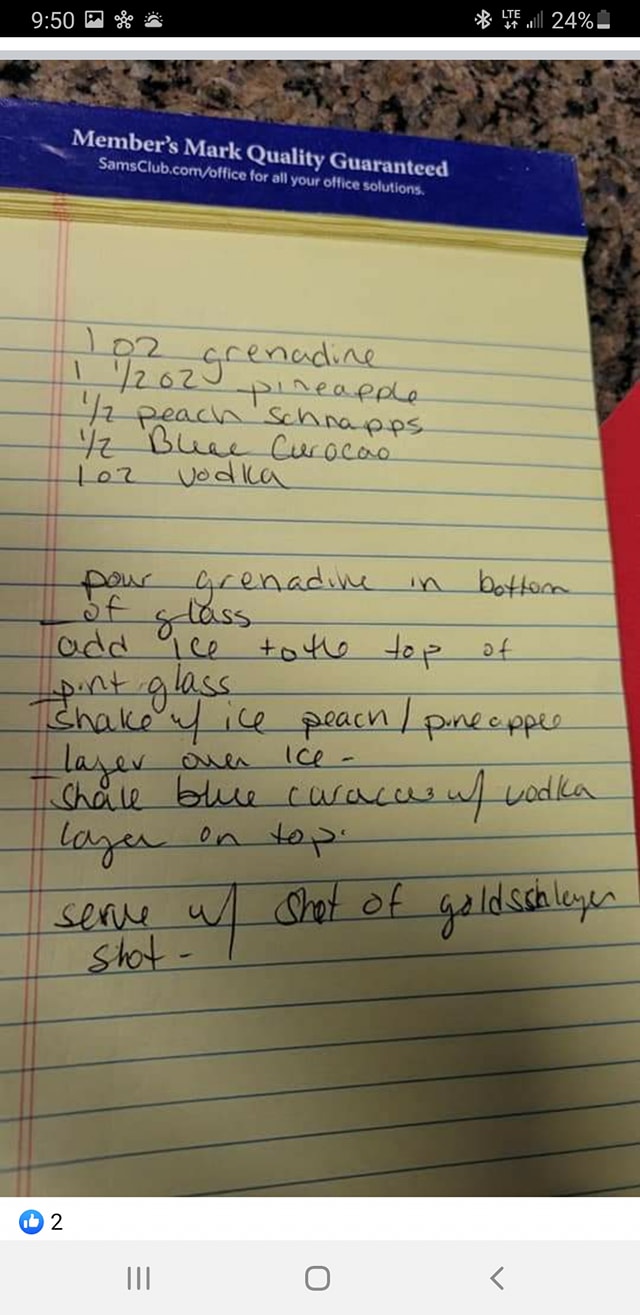 9:50
LTE
24%
Member's Mark Quality Guaranteed
SamsClub.com/office for all your office solutions.
1 oz grenadine
1 1/2 oz pineapple
1/2 peach schnapps
1/2 Blue Curocao
1 oz vodka
pour grenadine in bottom
of glass
add ice to the top of
pint glass
shake w/ ice peach/pineapple
layer over ice -
shake blue curacus w/ vodka
layer on top.
serve w/ shot of goldsshlager
shot -
2